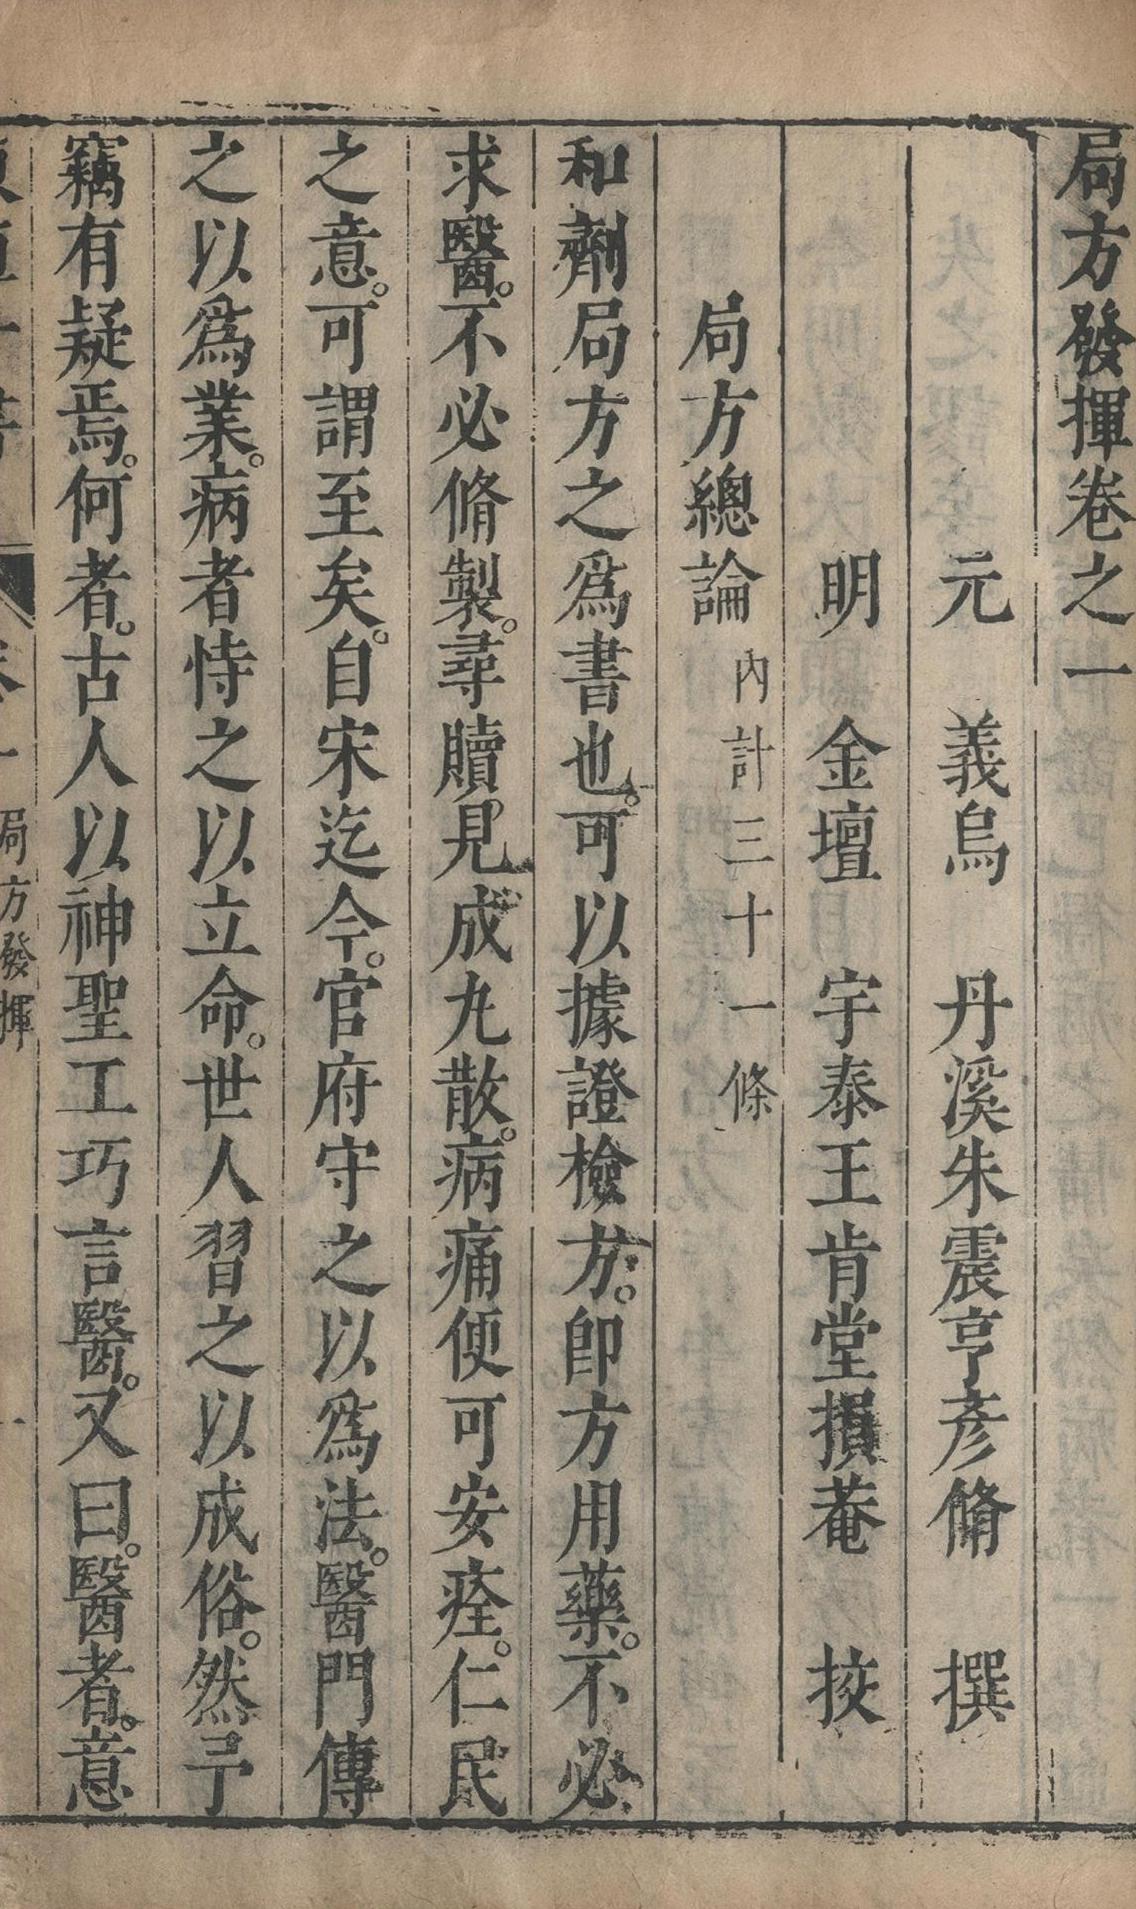 局方發揮卷之一
元 義烏 丹溪朱震亨彥脩 撰
明 金壇 宇泰王肯堂損菴 挍
局方總論 內計三十一條
和劑局方之爲書也。可以據證檢方。卽方用藥。不必
求醫。不必脩製。尋贖見成丸散。病痛便可安痊。仁民
之意。可謂至矣。自宋迄今。官府守之以爲法。醫門傳
之以爲業。病者恃之以立命。世人習之以成俗。然予
竊有疑焉。何者。古人以神聖工巧言醫。又曰。醫者。意
局方發揮